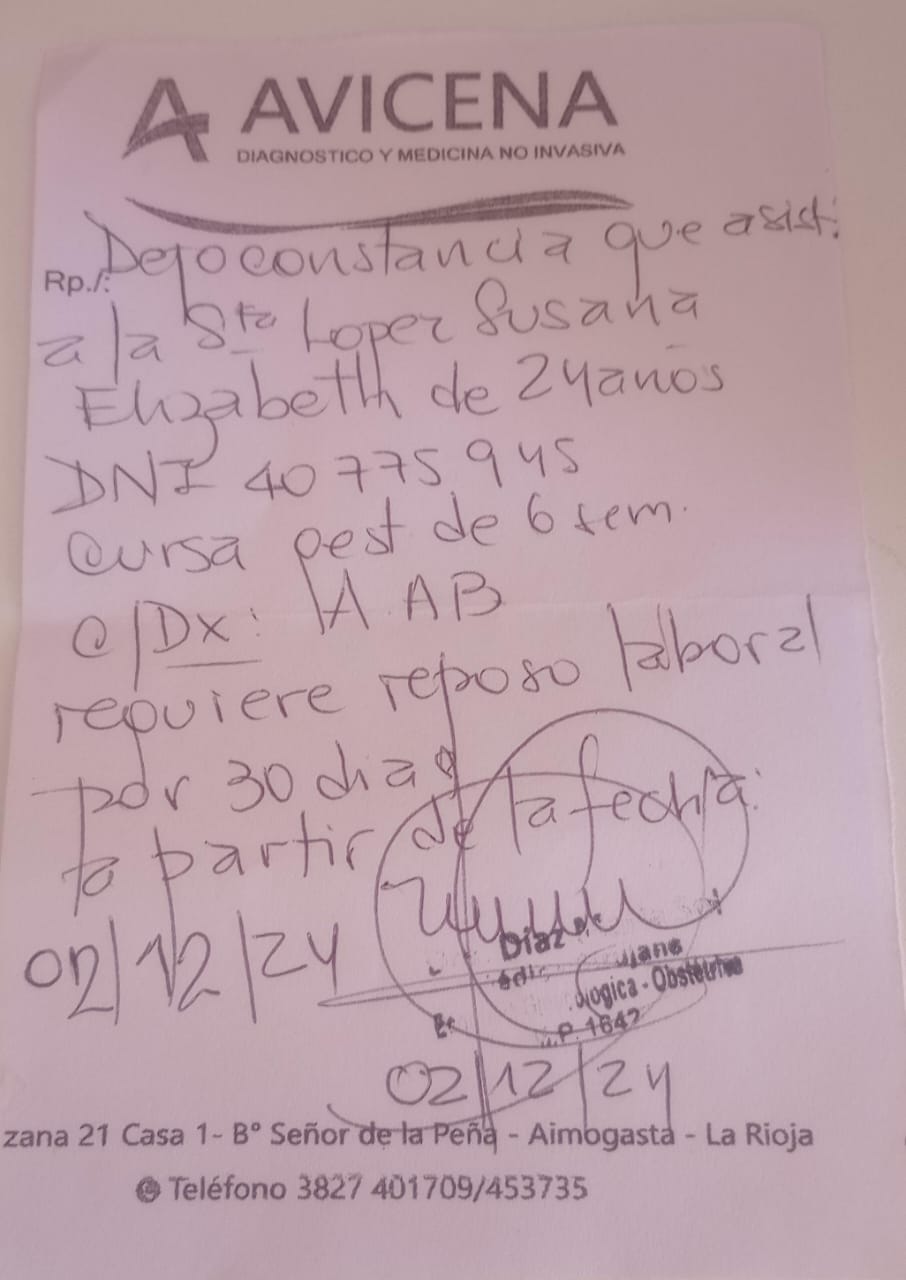 AVICENA
DIAGNOSTICO Y MEDICINA NO INVASIVA
Rp./:
Dejo constancia que asistí
a la Sta Lopez Susana
Elizabeth de 24 años
DNI 40 775 945
Cursa gest de 6 sem.
c/Dx: A AB
requiere reposo laboral
por 30 dias
a partir de la fecha.
02/12/24
Diaz
ógica - Obstétrica
P. 1642
02/12/24
zana 21 Casa 1- B° Señor de la Peña - Aimogasta - La Rioja
Teléfono 3827 401709/453735